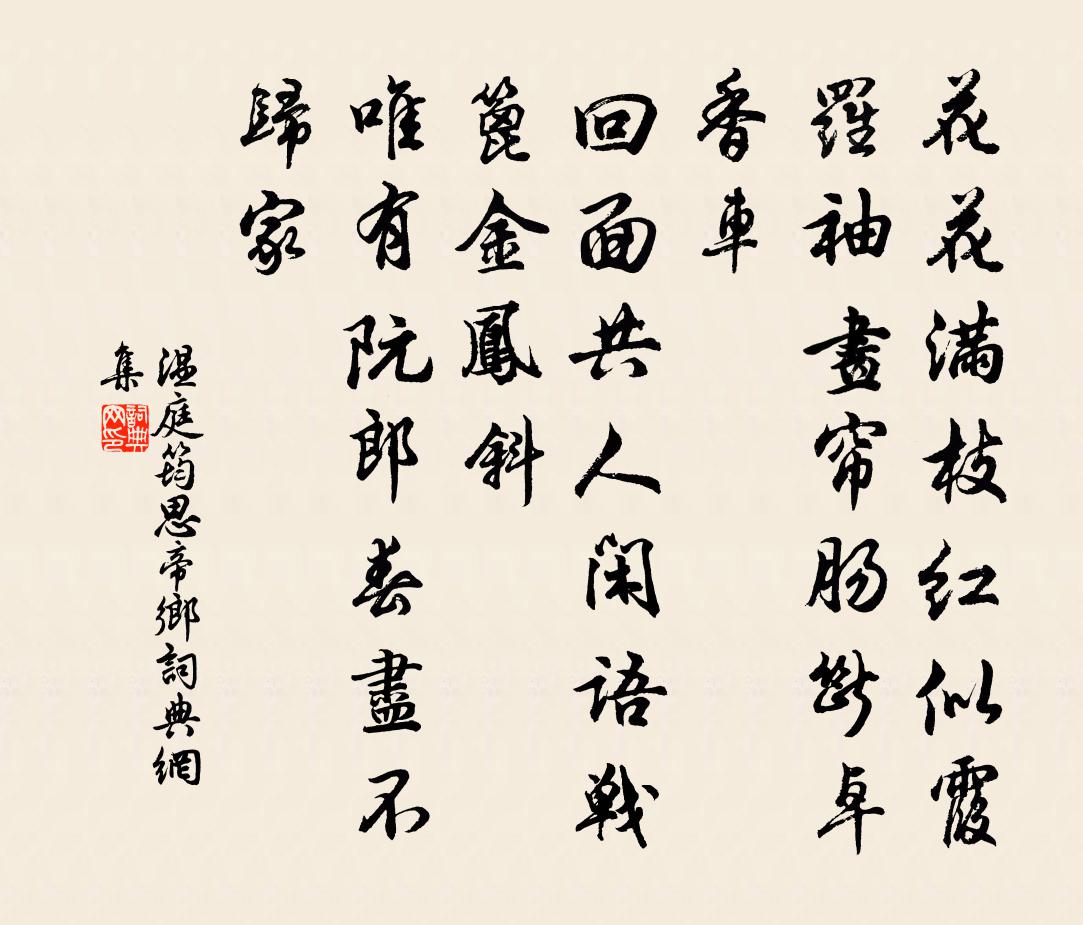 花花滿枝紅似霞
羅袖畫帘腸斷卓
香車
回面共人閑語戰
篦金鳳斜
唯有阮郎春盡不
歸家
溫庭筠思帝鄉詞典網
集
詞典网印